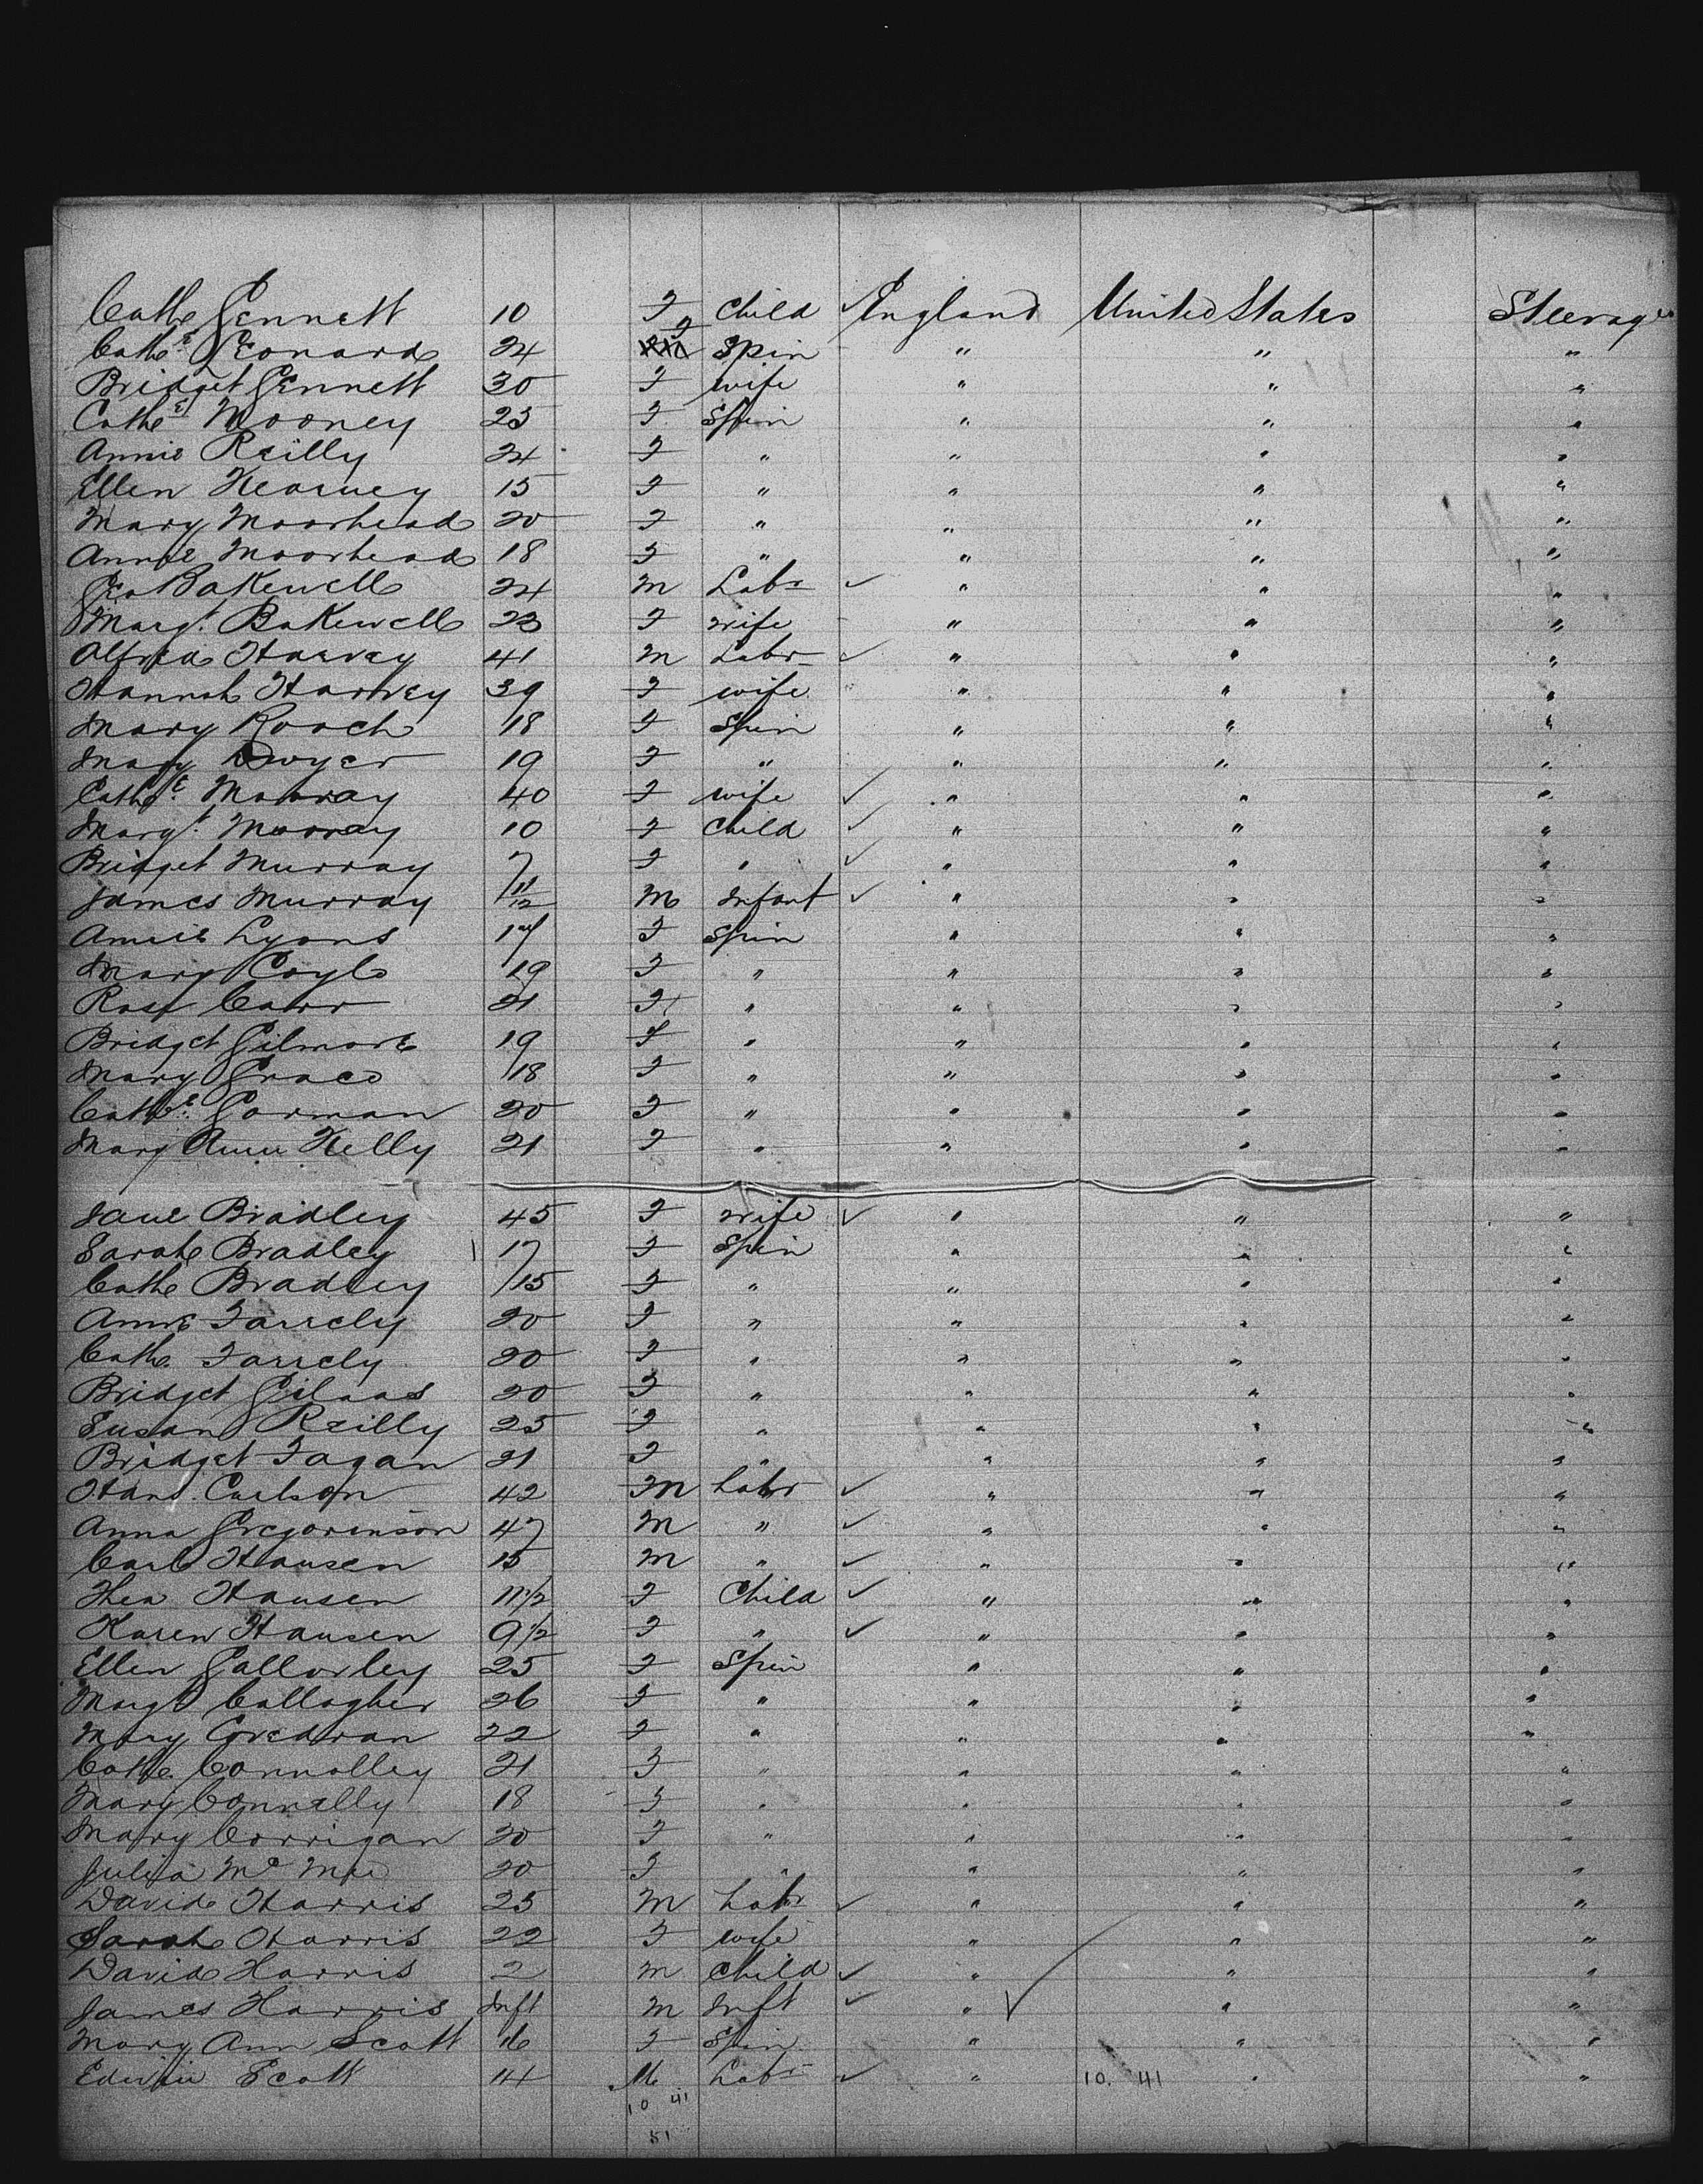 Cathe Gennett 10 F Child ✓ England United States Steerage
Cathe Leonard 24 F Spin " " "
Bridget Gennett 30 F wife " " "
Cathe Mooney 23 F Spin " " "
Annie Reilly 24 F " " " "
Ellen Kearney 15 F " " " "
Mary Moorhead 20 F " " " "
Annie Moorhead 18 F " " " "
Geo Bakewell 24 M Labr ✓ " " "
Margt. Bakewell 23 F wife " " "
Alfred Harvey 41 M Labr ✓ " " "
Hannah Harvey 39 F wife " " "
Mary Roach 18 F Spin " " "
Mary Dwyer 19 F " " " "
Cathe. Murray 40 F wife ✓ " " "
Margt. Murray 10 F Child ✓ " " "
Bridget Murray 7 F " ✓ " " "
James Murray 11/12 M Infant ✓ " " "
Annie Lyons 17 F Spin " " "
Mary Coyle 19 F " " " "
Rose Carr 21 F " " " "
Bridget Gilmore 19 F " " " "
Mary Grace 18 F " " " "
Cathe. Gorman 20 F " " " "
Mary Anne Kelly 21 F " " " "
Jane Bradley 45 F wife ✓ " " "
Sarah Bradley 17 F Spin " " "
Cathe Bradley 15 F " " " "
Anne Farrely 20 F " " " "
Cathe. Farrely 20 F " " " "
Bridget 20 F " " " "
Susan Reilly 25 F " " " "
Bridget Fagan 21 F " " " "
Hans. Carlson 42 M Labr ✓ " " "
Anna Gregorenson 47 M " ✓ " " "
Carl Hansen 15 M " ✓ " " "
Thea Hansen 11 1/2 F Child ✓ " " "
Karen Hansen 9 1/2 F " ✓ " " "
Ellen Gallorley 25 F Spin " " "
Margt Callagher 26 F " " " "
Mary Corcoran 22 F " " " "
Cathe. Connolley 21 F " " " "
Mary Connolly 18 F " " " "
Mary Corrigan 20 F " " " "
Julia Mc 20 F " " " "
David Harris 25 M Labr ✓ " " "
Sarah Harris 22 F wife " " "
David Harris 2 M Child ✓ " " "
James Harris Inft M Inft ✓ " ✓ " "
Mary Ann Scott 16 F Spin " " "
Edwin Scott 14 M Labr ✓ " 10. 41 " "
10 41
51